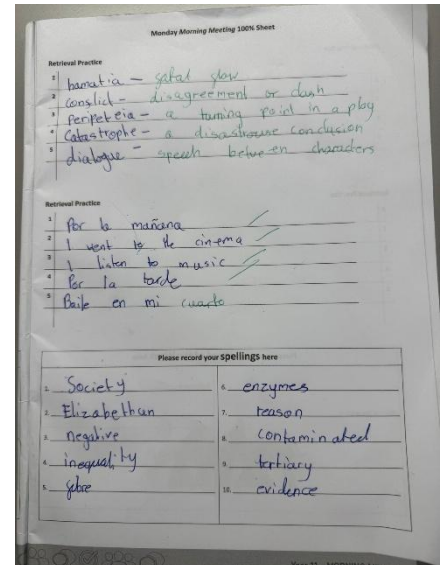 Monday Morning Meeting 100% Sheet
Retrieval Practice
1 hamatia – fatal flow
2 conflict – disagreement or clash
3 peripeteia – a turning point in a play
4 Catastrophe – a disastrouse conclusion
5 dialogue – speech between characters
Retrieval Practice
1 Por la mañana
2 I went to the cinema
3 I listen to music
4 Por la tarde
5 Baile en mi cuarto
Please record your spellings here
1. Society
2. Elizabethan
3. negative
4. inequality
5. fibre
6. enzymes
7. reason
8. contaminated
9. tertiary
10. evidence